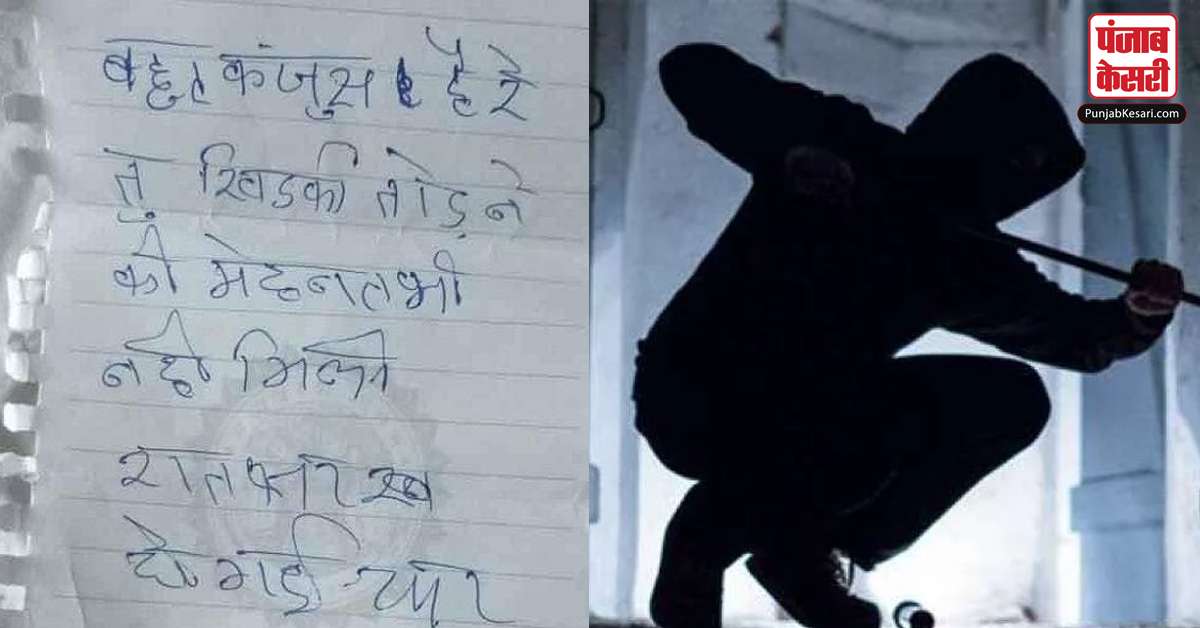 बहुत कंजुस है रे
तु खिडकी तोड़ने
की मेहनत भी
नही मिली
रात
हो गई यार
पंजाब
केसरी
PunjabKesari.com